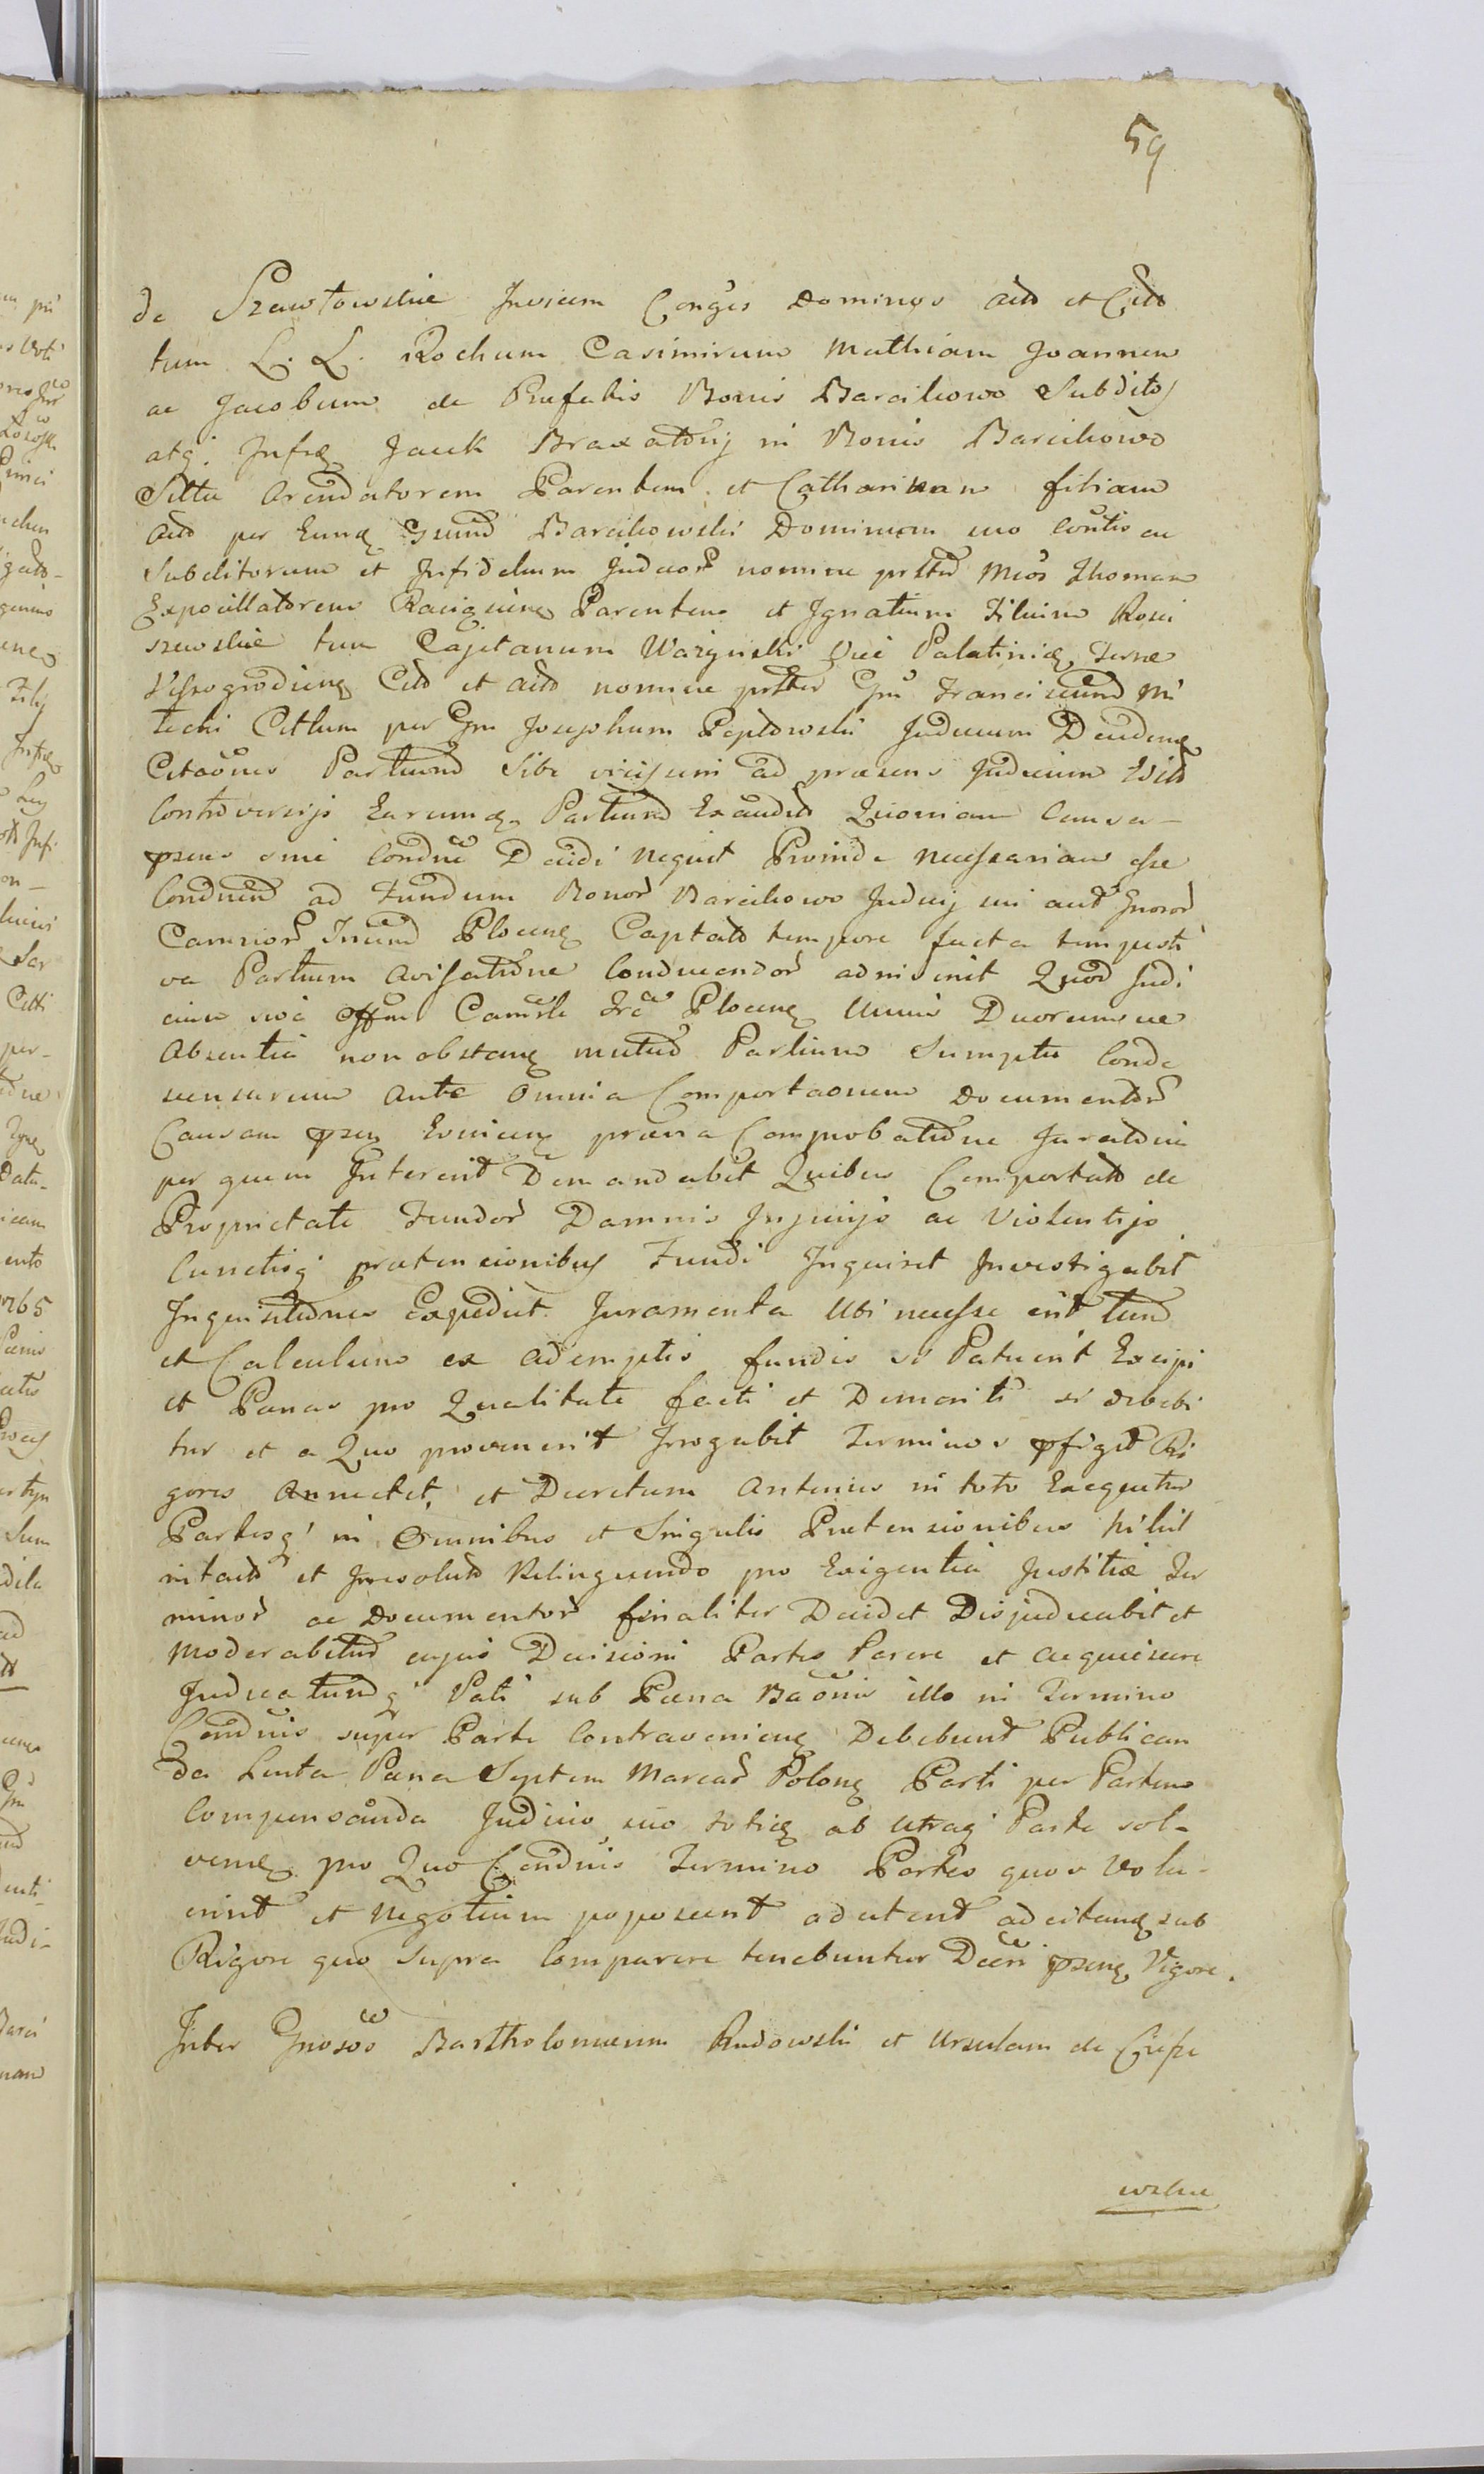 59
de Szawłowskie Invicem Conges Dominos actt et Citt
tum L. L. Rochum Casimirum Mathiam Joannem
ac Jacobum de Prefatis Bonis Barcikowo Subditos
atq. Infq Jacek Braxatorij in Bonis Barcikowo
Sitti Arendatorem Parentem et Catharinam filiam
actt per Eunq Gnum Barcikowski Dominum suo
Subditorum et Infidelium Judaor nomine Thomam
Parentem et Ignatium Filium Rosci
szewskie tum Cajetanum Wazynski Vice Palatinq Terræ
Vissogrodienq Citt et actt nomine Franciscum Mi
lecki Cittum per Gnm Josephum Pepłowski Judicum
Citaones Partium Sibi vicissim ad præsens Judicium
Controversijs Earumq Partium Exaudit Quoniam Causa
pzens sine Condnē Decidi nequit Proinde necessariam esse
ad Fundum Bonor Barcikowo Judicij sui aut Gnoror
Camrior Plocenq Captato tempore facta tempesti
va Partium Avisatione admisit Quod Judi
cium sive Offm Plocenq Unius Duorumve
Absentia non obstanq mutuo Partium Sumptu Conde
scensurum ante Omnia Comportaonem Documentor
Causam pzen prævia Comprobatione Juratoria
per quem Intererit Demandabit Quibus Comportatt de
Proprietate Fundor Damnis Injurijs ac Violentijs
Cunctisq prætensionibus Fundi Inquiret Investigabit
Inquisitiones Expediet Juramenta Ubi necesse erit tum
et Calculum ex ademptis fundis si Patuerit Excipi
et Pænas pro Qualitate facti et Demeriti si debebi
tur et a Quo provenerit Irrogabit Terminos pfiget Ri
gores Annectet, et Decretum Anterius in toto Exequetur
Partesq in Omnibus et Singulis Prætensionibus Nihil
intact et Irresolut Relinquendo pro Exigentia Justitiæ Ter
minor ac Documentor finaliter Decidet Disjudicabit et
Moderabitur cujus Decisioni Partes Parere et acquiescere
Judicatumq Pati sub Pæna Baonis illo in Termino
Condnis super Parte Contravenienq Debebunt Publican
da Lenta Pæna Septem Marcar Polonq Parti per Partem
Compensanda Judicio suo totieq ab utraq Parte sol-
venq pro Quo Condnis Termino Partes quos volu-
erint et Negotium poposcerit adcitent adcitanq sub
Rigore quo supra Comparere tenebuntur Decri pzenq Vigore.
Inter Gnosos Bartholomæum Rudowski et Ursulam de Ciesze
wskie